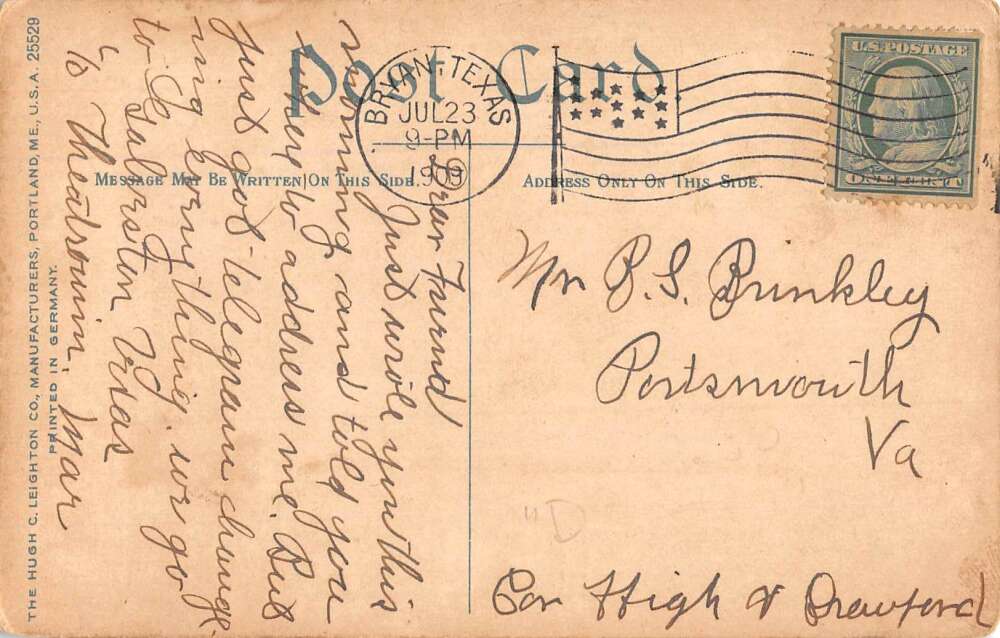 Post Card.
BRYAN, TEXAS
JUL 23
9-PM
1909
U.S. POSTAGE
MESSAGE MAY BE WRITTEN ON THIS SIDE.
ADDRESS ONLY ON THIS SIDE.
Dear Friend
Just wrote you this
morning and told you
where to address me. But
Just got telegram chang-
ing everything. we go
to Galveston Texas
To Theatre
Mr P. S. Brinkley
Portsmouth
Va
"D
Cor High & Crawford
THE HUGH C. LEIGHTON CO., MANUFACTURERS, PORTLAND, ME., U.S.A. 25529
PRINTED IN GERMANY.